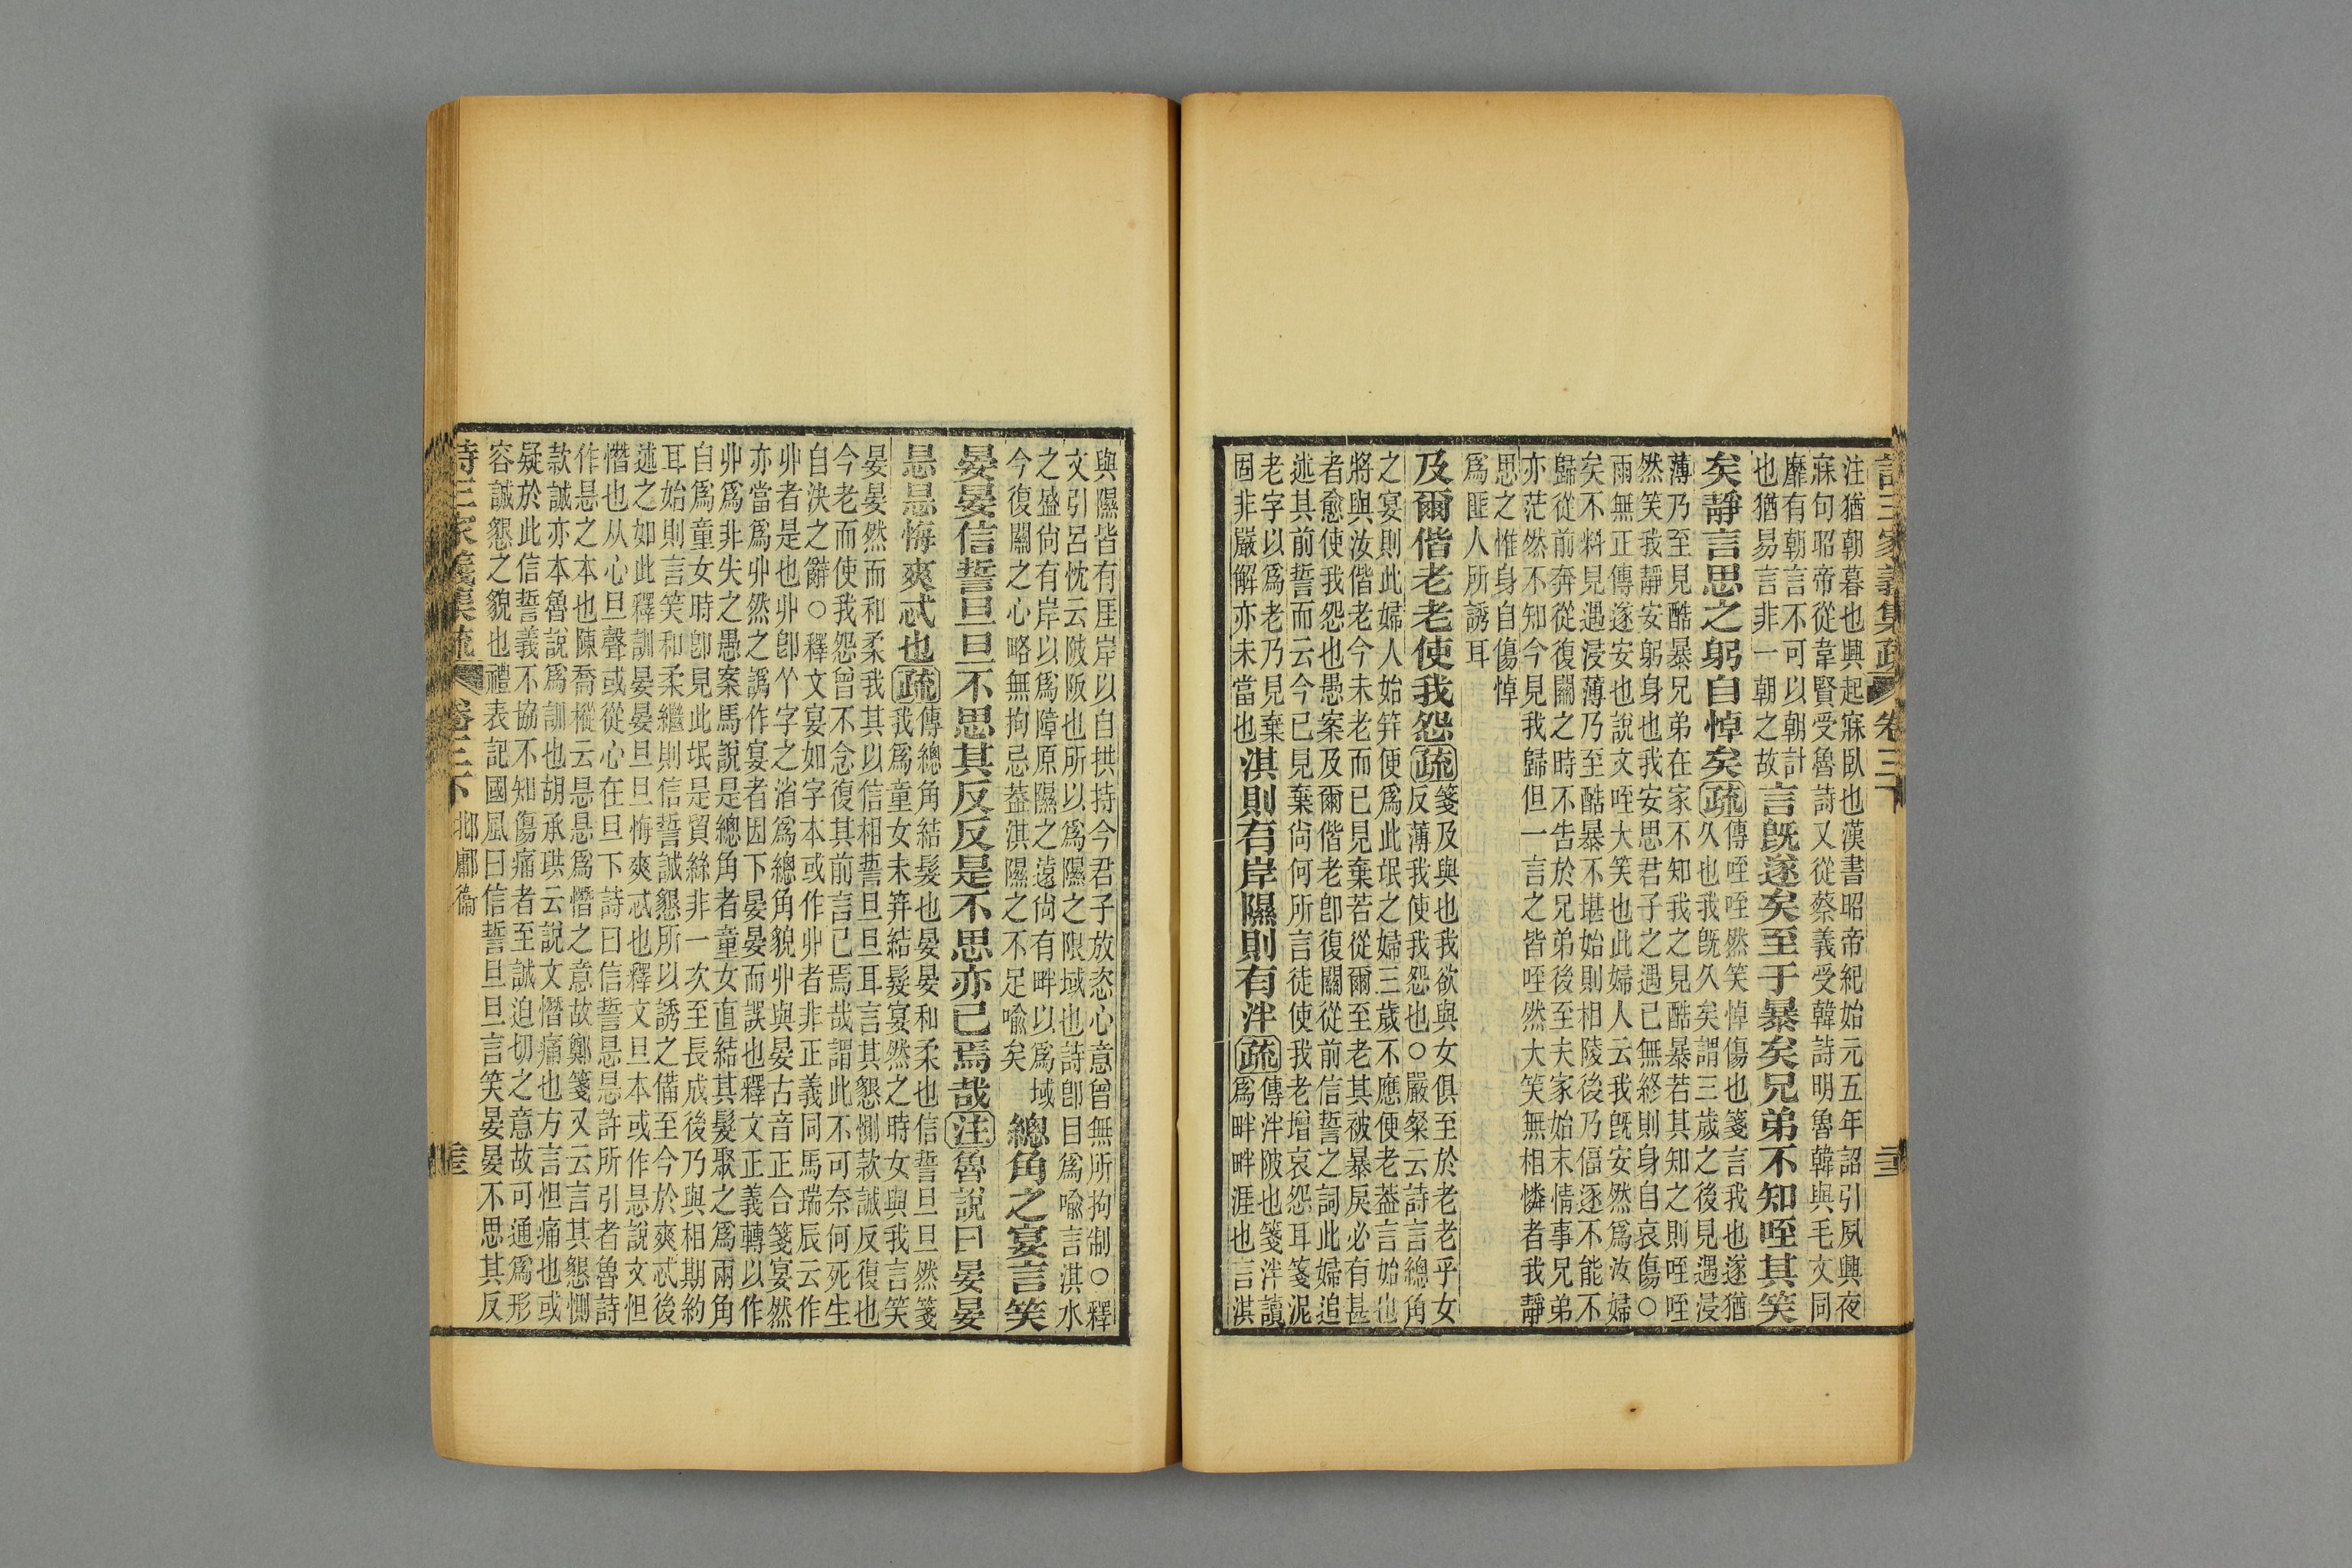 詩三家義集疏 卷三下 三三
注猶朝暮也興起寐臥也漢書昭帝紀始元五年詔引夙興夜
寐句昭帝從韋賢受魯詩又從蔡義受韓詩明魯韓與毛文同
靡有朝言不可以朝計
也猶易言非一朝之故
言旣遂矣至于暴矣兄弟不知咥其笑
矣靜言思之躬自悼矣疏
傳咥咥然笑悼傷也箋言我也遂猶
久也我旣久矣謂三歲之後見遇浸
薄乃至見酷暴兄弟在家不知我之見酷暴若其知之則咥咥
然笑我靜安躬身也我安思君子之遇己無終則身自哀傷○
雨無正傳遂安也說文咥大笑也此婦人云我旣安然爲汝婦
矣不料見遇浸薄乃至酷暴不堪始則相陵後乃偪逐不能不
歸從前奔從復關之時不告於兄弟後至夫家始末情事兄弟
亦茫然不知今見我歸但一言之皆咥然大笑無相憐者我靜
思之惟身自傷悼
爲匪人所誘耳
及爾偕老老使我怨疏
箋及與也我欲與女俱至於老老乎女
反薄我使我怨也○嚴粲云詩言總角
之宴則此婦人始笄便爲此氓之婦三歲不應便老蓋言始也
將與汝偕老今未老而已見棄若從爾至老其被暴戾必有甚
者愈使我怨也愚案及爾偕老卽復關從前信誓之詞此婦追
述其前誓而云今已見棄尙何所言徒使我老增哀怨耳箋泥
老字以爲老乃見棄
固非嚴解亦未當也
淇則有岸隰則有泮疏
傳泮陂也箋泮讀
爲畔畔涯也言淇
與隰皆有厓岸以自拱持今君子放恣心意曾無所拘制○釋
文引呂忱云陂阪也所以爲隰之限域也詩卽目爲喩言淇水
之盛尙有岸以爲障原隰之遠尙有畔以爲域
今復關之心略無拘忌蓋淇隰之不足喩矣
總角之宴言笑
晏晏信誓旦旦不思其反反是不思亦已焉哉注魯說曰晏晏
㫜㫜悔爽忒也疏
傳總角結髮也晏晏和柔也信誓旦旦然箋
我爲童女未笄結髮宴然之時女與我言笑
晏晏然而和柔我其以信相誓旦旦耳言其懇惻款誠反復也
今老而使我怨曾不念復其前言已焉哉謂此不可奈何死生
自決之辭○釋文宴如字本或作丱者非正義同馬瑞辰云作
丱者是也丱卽𠁥字之渻爲總角貌丱與晏古音正合箋宴然
亦當爲丱然之譌作宴者因下晏晏而誤也釋文正義轉以作
丱爲非失之愚案馬說是總角者童女直結其髮聚之爲兩角
自爲童女時卽見此氓是貿絲非一次至長成後乃與相期約
耳始則言笑和柔繼則信誓誠懇所以誘之備至今於爽忒後
述之如此釋訓晏晏旦旦悔爽忒也釋文旦本或作㫜說文怛
憯也从心旦聲或從心在旦下詩曰信誓㫜㫜許所引者魯詩
作㫜之本也陳喬樅云㫜㫜爲憯之意故鄭箋又云言其懇惻
款誠亦本魯說爲訓也胡承珙云說文憯痛也方言怛痛也或
疑於此信誓義不協不知傷痛者至誠迫切之意故可通爲形
容誠懇之貌也禮表記國風曰信誓旦旦言笑晏晏不思其反
詩三家義集疏 卷三下 邶鄘衞 三三